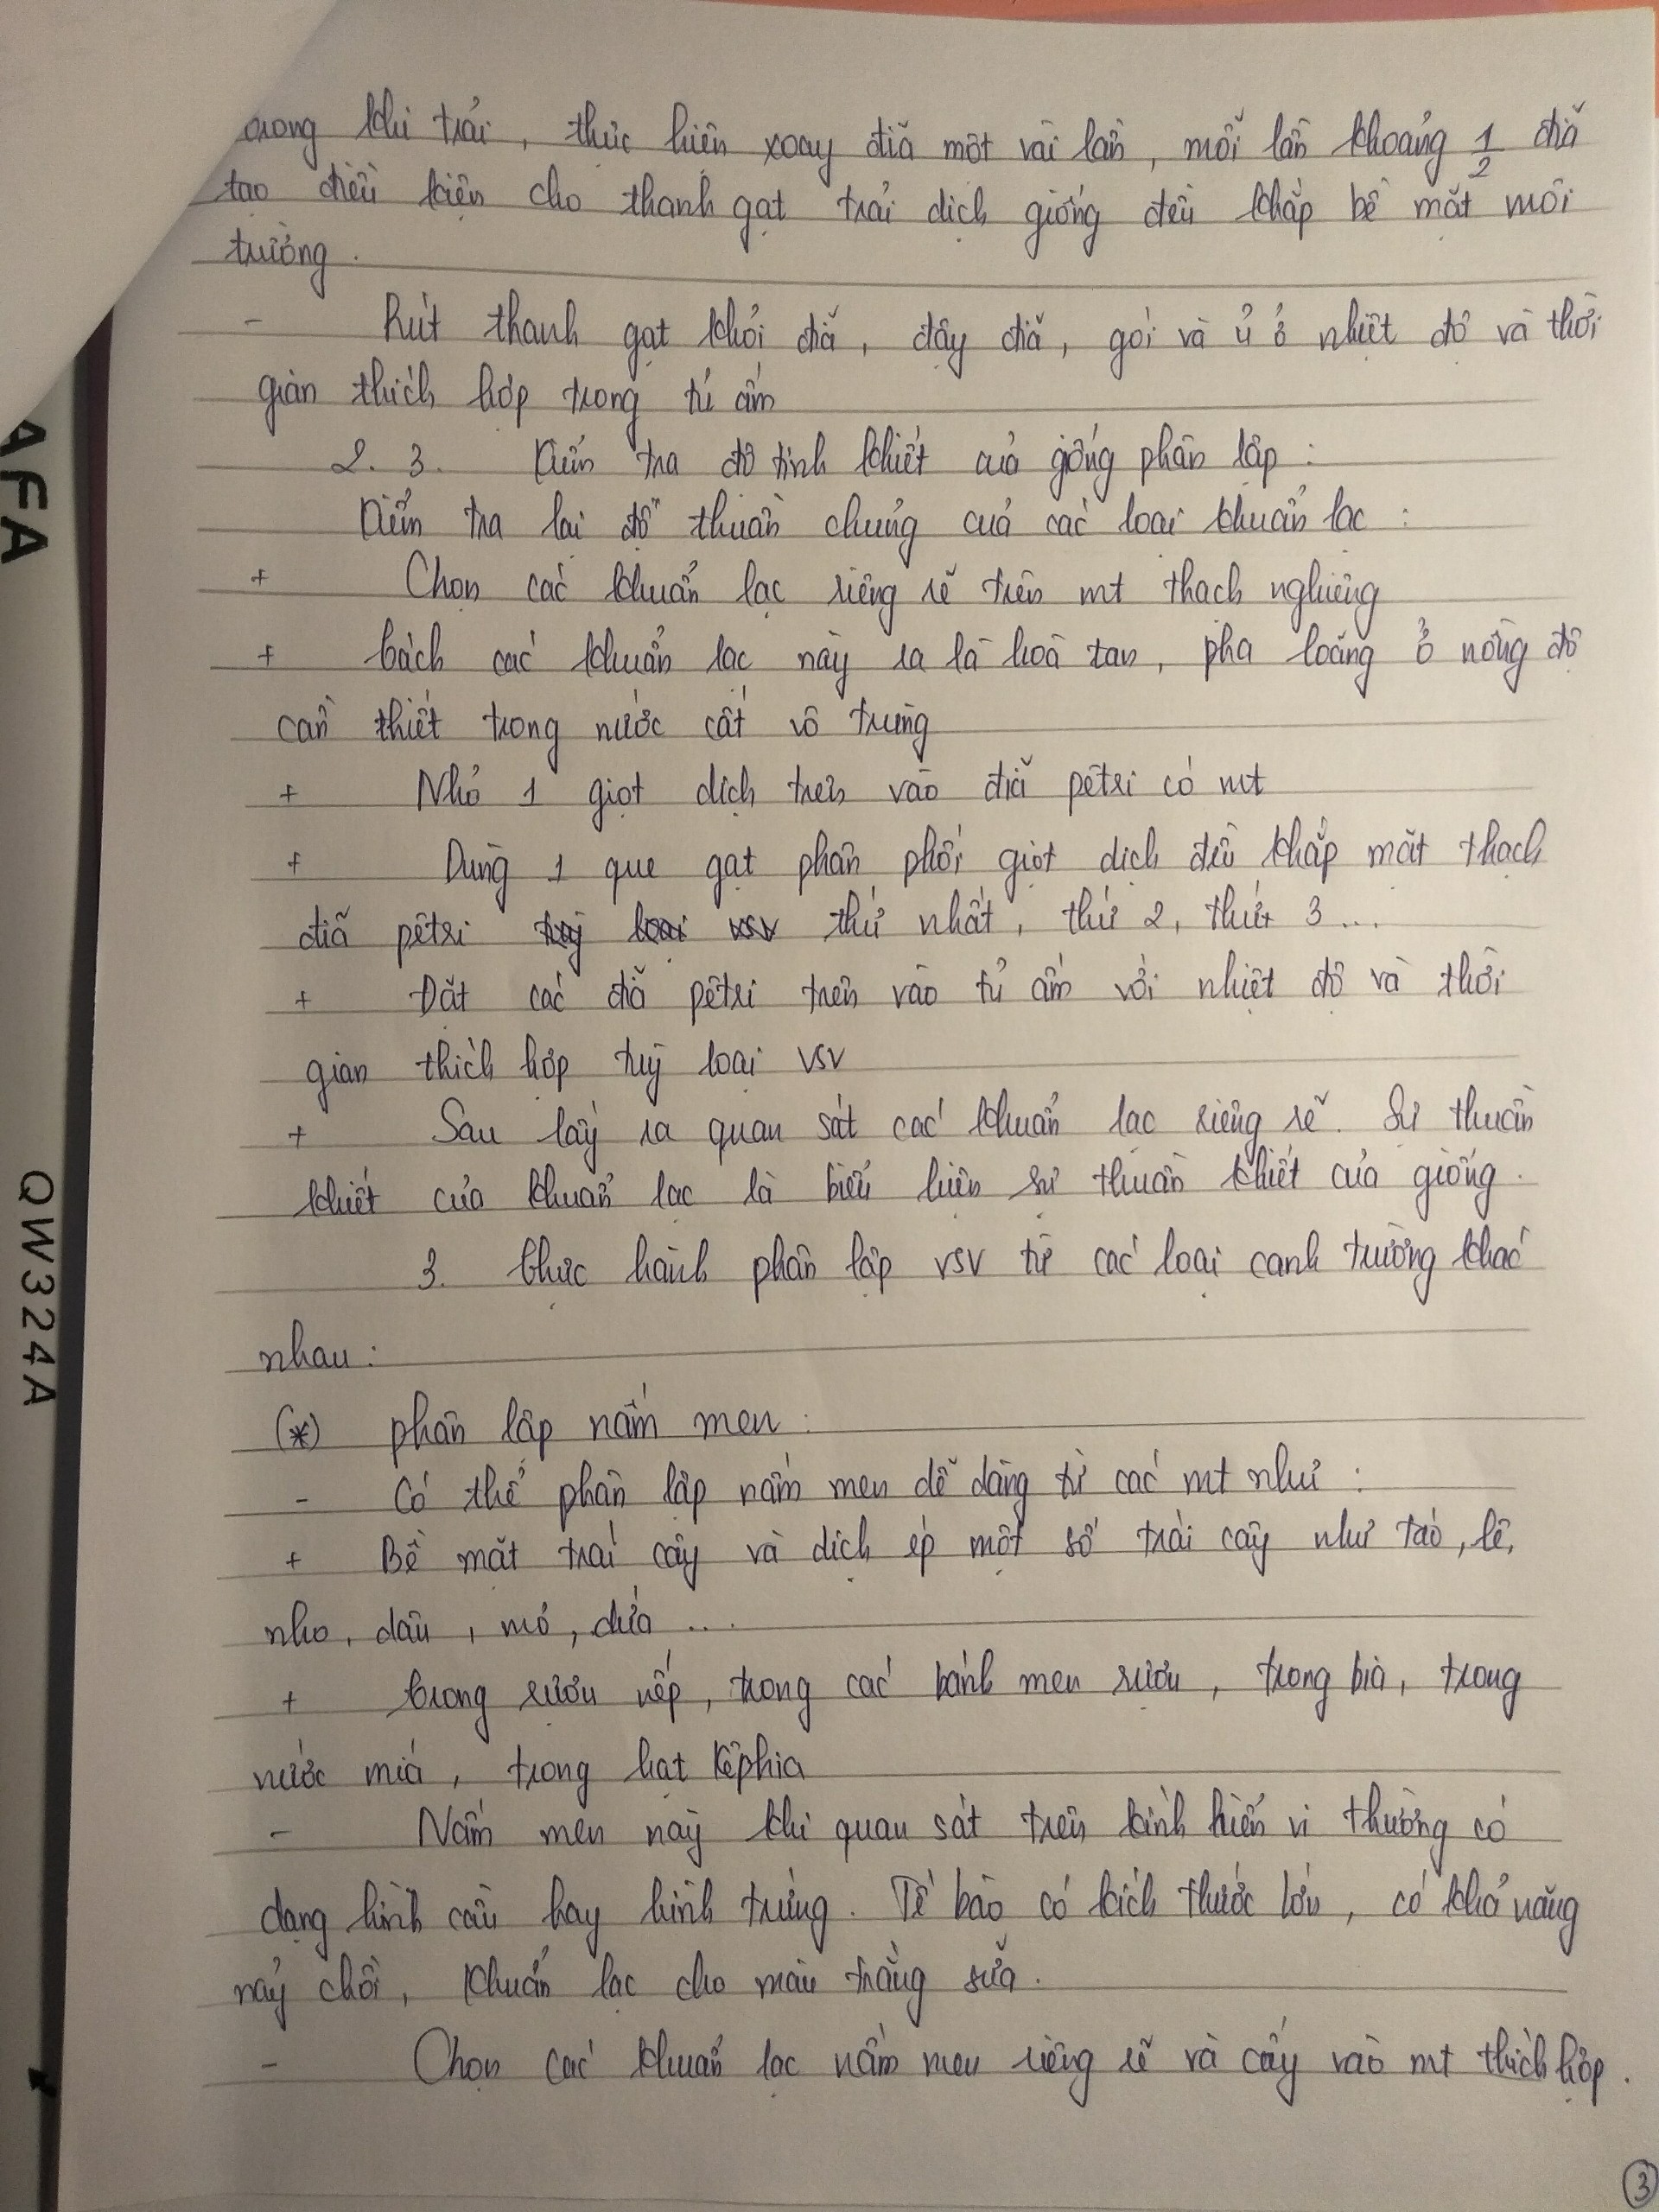 trong khi trải, thực hiện xoay đĩa một vài lần, mỗi lần khoảng 1/2 đĩa
tạo điều kiện cho thanh gạt trải dịch giống đều khắp bề mặt môi
trường.
- Rút thanh gạt khỏi đĩa, đậy đĩa, gói và ủ ở nhiệt độ và thời
gian thích hợp trong tủ ấm
2.3. Kiểm tra độ tinh khiết của giống phân lập:
Kiểm tra lại độ thuần chủng của các loại khuẩn lạc:
+ Chọn các khuẩn lạc riêng rẽ trên mt thạch nghiêng
+ Tách các khuẩn lạc này ra là hoà tan, pha loãng ở nồng độ
cần thiết trong nước cất vô trùng
+ Nhỏ 1 giọt dịch trên vào đĩa pêtri có mt
+ Dùng 1 que gạt phân phối giọt dịch đều khắp mặt thạch
đĩa pêtri thứ nhất, thứ 2, thứ 3...
+ Đặt các đĩa pêtri trên vào tủ ấm với nhiệt độ và thời
gian thích hợp tuỳ loại VSV
+ Sau lấy ra quan sát các khuẩn lạc riêng rẽ. Sự thuần
khiết của khuẩn lạc là biểu hiện sự thuần khiết của giống.
3. Thực hành phân lập VSV từ các loại canh trường khác
nhau:
(*) phân lập nấm men:
- Có thể phân lập nấm men dễ dàng từ các mt như:
+ Bề mặt trái cây và dịch ép một số trái cây như táo, lê,
nho, dâu, mơ, dứa...
+ Trong rượu nếp, trong các bánh men rượu, trong bia, trong
nước mía, trong hạt Kêphia
- Nấm men này khi quan sát trên kính hiển vi thường có
dạng hình cầu hay hình trứng. Tế bào có kích thước lớn, có khả năng
nảy chồi, khuẩn lạc cho màu trắng sữa.
- Chọn các khuẩn lạc nấm men riêng rẽ và cấy vào mt thích hợp.
3
AFA
QW324A